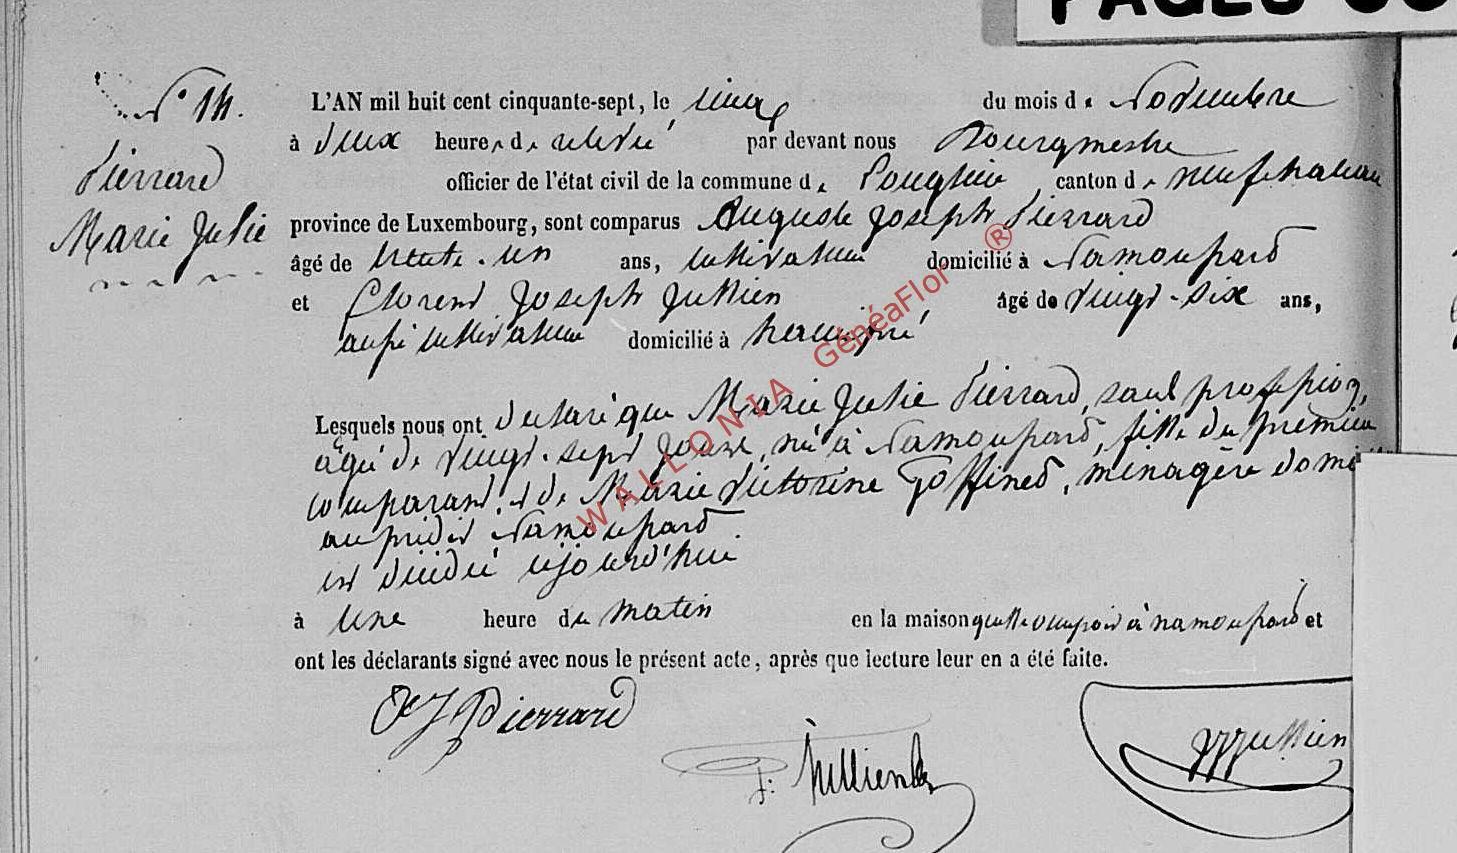 PAGES
N° 14.
Pierrard
Marie Julie
L'AN mil huit cent cinquante-sept, le cinq du mois de Novembre
à deux heures de relevé par devant nous Bourgmestre
officier de l'état civil de la commune de Longlier canton de neufchateau
province de Luxembourg, sont comparus Auguste Joseph Pierrard
âgé de trente-un ans, cultivateur domicilié à Namoussart
et Florent Joseph Jullien âgé de vingt-six ans,
aussi cultivateur domicilié à hamipré
Lesquels nous ont declaré que Marie Julie Pierrard, sans profession,
agé de vingt-sept jours, né à Namoussart, fille du premier
comparant, et de Marie Victorine Goffinet, ménagère
au susdit Namoussart
est décédé ujourd'hui
à une heure du matin en la maison qu'elle occupoit à namoussart et
ont les déclarants signé avec nous le présent acte, après que lecture leur en a été faite.
AJ Pierrard
F: Jullien
Jullien
WALLONIA GénéaFlor ®